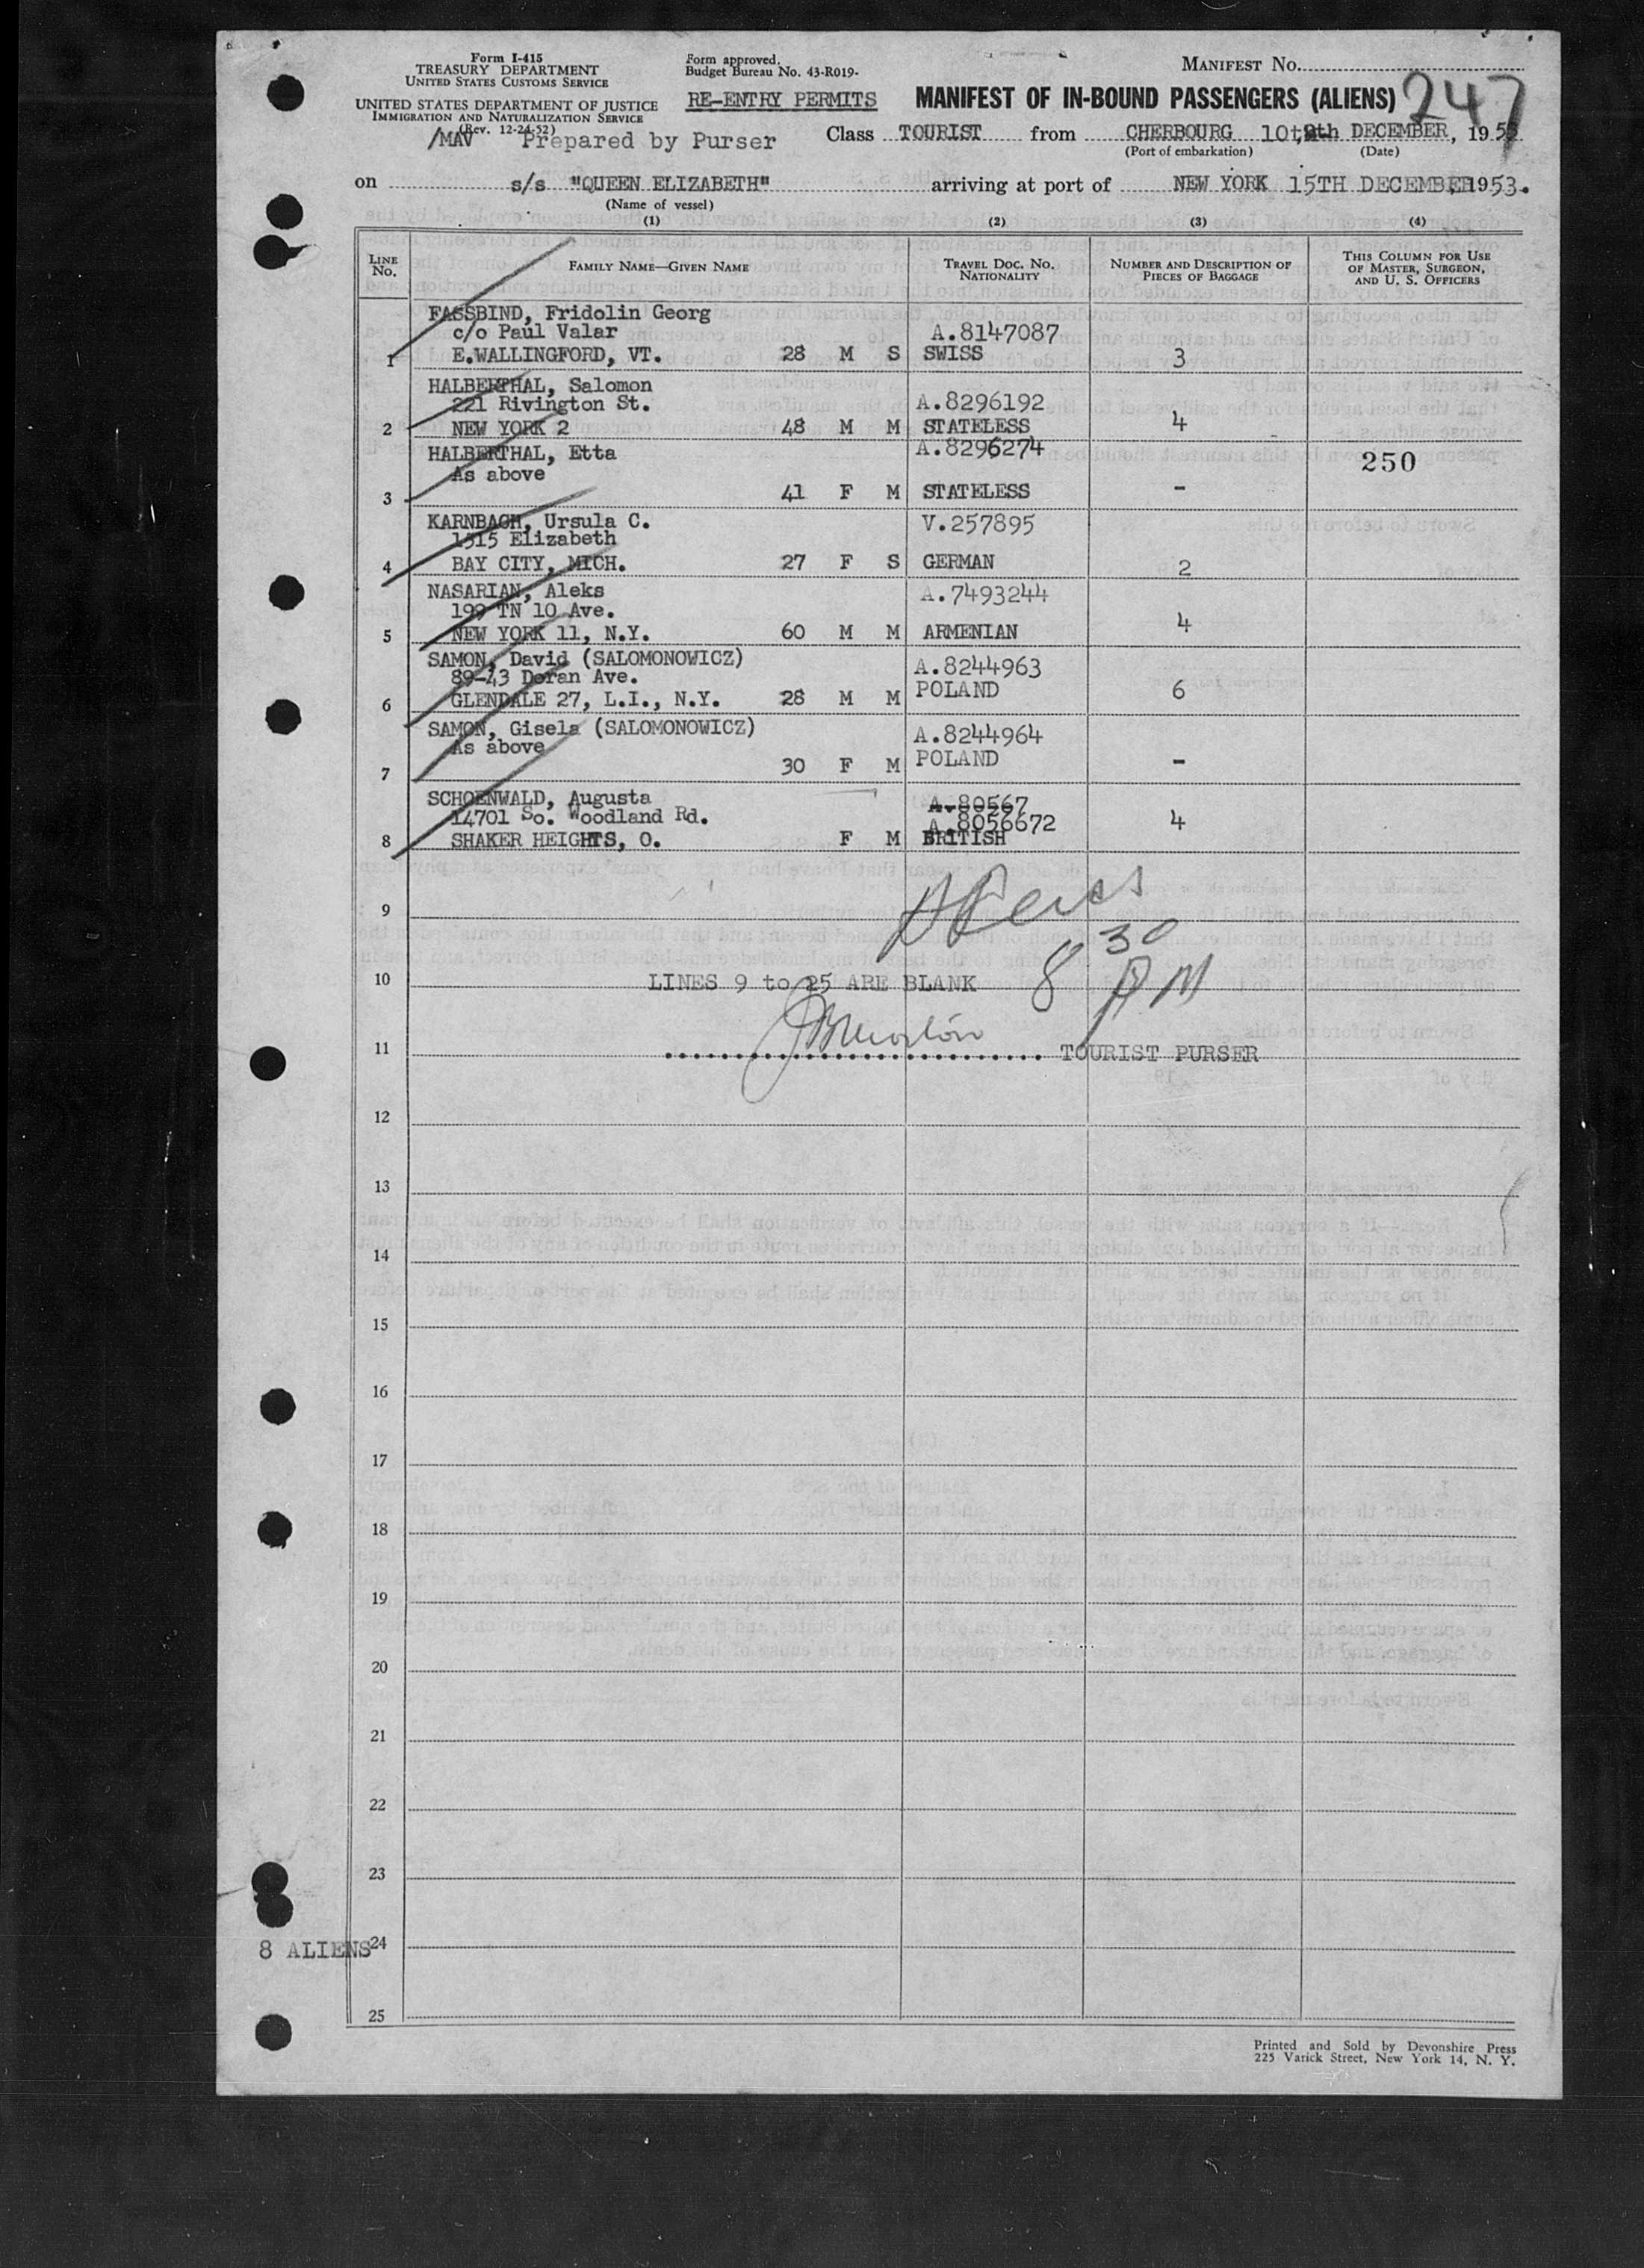 Form I-415
TREASURY DEPARTMENT
UNITED STATES CUSTOMS SERVICE
UNITED STATES DEPARTMENT OF JUSTICE
IMMIGRATION AND NATURALIZATION SERVICE
(Rev. 12-24-52)
Form approved.
Budget Bureau No. 43-R019-
RE-ENTRY PERMITS
MANIFEST NO.
MANIFEST OF IN-BOUND PASSENGERS (ALIENS)
247
/MAV Prepared by Purser
Class TOURIST from CHERBOURG 10th DECEMBER, 1953
(Port of embarkation) (Date)
on s/s "QUEEN ELIZABETH" arriving at port of NEW YORK 15TH DECEMBER 1953.
(Name of vessel)
(1) (2) (3) (4)
LINE NO. FAMILY NAME—GIVEN NAME TRAVEL DOC. NO. NATIONALITY NUMBER AND DESCRIPTION OF PIECES OF BAGGAGE THIS COLUMN FOR USE OF MASTER, SURGEON, AND U. S. OFFICERS
FASSBIND, Fridolin Georg
c/o Paul Valar A.8147087
1 E.WALLINGFORD, VT. 28 M S SWISS 3
HALBERTHAL, Salomon
221 Rivington St. A.8296192
2 NEW YORK 2 48 M M STATELESS 4
HALBERTHAL, Etta A.8296274
As above 250
3 41 F M STATELESS -
KARNBAGH, Ursula C. V.257895
1515 Elizabeth
4 BAY CITY, MICH. 27 F S GERMAN 2
NASARIAN, Aleks A.7493244
199 TN 10 Ave.
5 NEW YORK 11, N.Y. 60 M M ARMENIAN 4
SAMON, David (SALOMONOWICZ) A.8244963
89-43 Doran Ave.
6 GLENDALE 27, L.I., N.Y. 28 M M POLAND 6
SAMON, Gisela (SALOMONOWICZ) A.8244964
As above POLAND
7 30 F M -
SCHOENWALD, Augusta A.80567
14701 So. Woodland Rd. A.8056672 4
8 SHAKER HEIGHTS, O. F M BRITISH
9
8 30 PM
10 LINES 9 to 25 ARE BLANK
11 TOURIST PURSER
12
13
14
15
16
17
18
19
20
21
22
23
8 ALIENS 24
25
Printed and Sold by Devonshire Press
225 Varick Street, New York 14, N. Y.